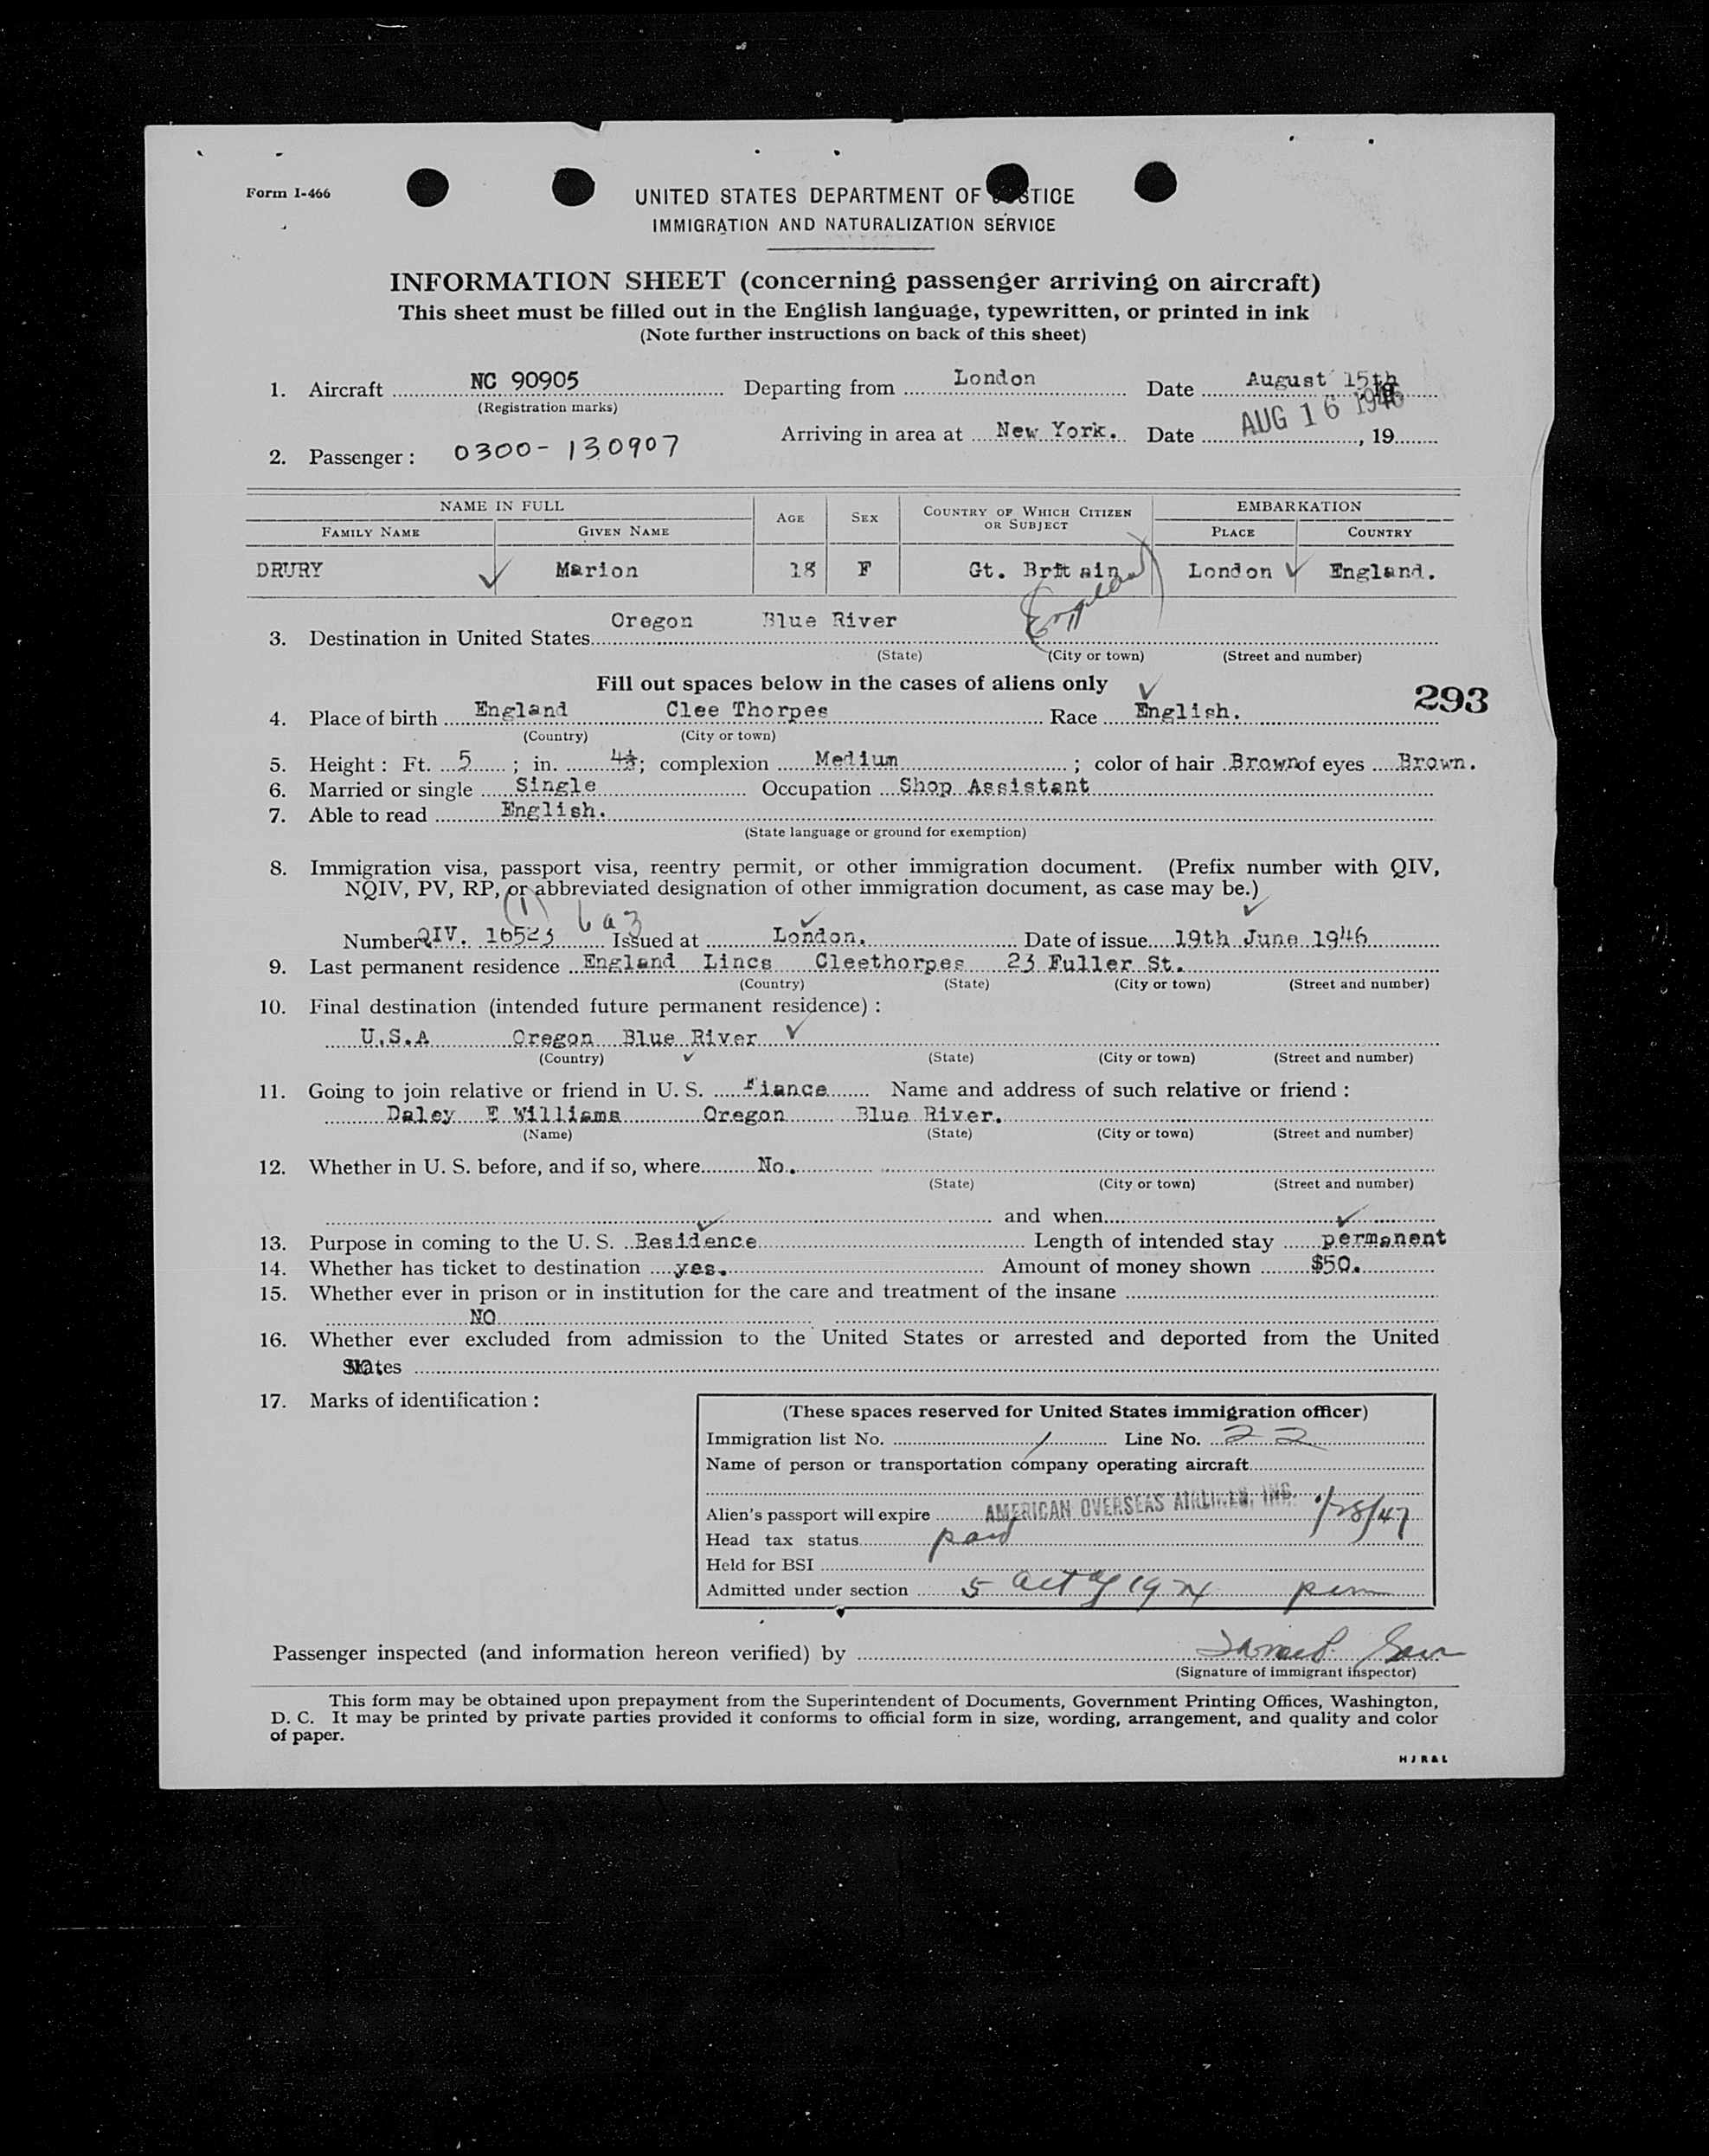 Form I-466
UNITED STATES DEPARTMENT OF JUSTICE
IMMIGRATION AND NATURALIZATION SERVICE
INFORMATION SHEET (concerning passenger arriving on aircraft)
This sheet must be filled out in the English language, typewritten, or printed in ink
(Note further instructions on back of this sheet)
1. Aircraft NC 90905 Departing from London Date August 15th
(Registration marks)
AUG 16 1946
Arriving in area at New York. Date , 19
2. Passenger : 0300-130907
NAME IN FULL AGE SEX COUNTRY OF WHICH CITIZEN OR SUBJECT EMBARKATION
FAMILY NAME GIVEN NAME PLACE COUNTRY
DRURY Marion 18 F Gt. Britain London England.
England
Oregon Blue River
3. Destination in United States
(State) (City or town) (Street and number)
Fill out spaces below in the cases of aliens only
293
4. Place of birth England Clee Thorpes Race English.
(Country) (City or town)
5. Height : Ft. 5 ; in. 4½; complexion Medium ; color of hair Brown of eyes Brown.
6. Married or single Single Occupation Shop Assistant
7. Able to read English.
(State language or ground for exemption)
8. Immigration visa, passport visa, reentry permit, or other immigration document. (Prefix number with QIV,
NQIV, PV, RP, or abbreviated designation of other immigration document, as case may be.)
(1) 6a3
Number QIV. 16523 Issued at London. Date of issue 19th June 1946
9. Last permanent residence England Lincs Cleethorpes 23 Fuller St.
(Country) (State) (City or town) (Street and number)
10. Final destination (intended future permanent residence) :
U.S.A Oregon Blue River
(Country) (State) (City or town) (Street and number)
11. Going to join relative or friend in U. S. Fiance Name and address of such relative or friend :
Daley E Williams Oregon Blue River.
(Name) (State) (City or town) (Street and number)
12. Whether in U. S. before, and if so, where No.
(State) (City or town) (Street and number)
and when
13. Purpose in coming to the U. S. Residence Length of intended stay permanent
14. Whether has ticket to destination yes. Amount of money shown $50.
15. Whether ever in prison or in institution for the care and treatment of the insane
NO
16. Whether ever excluded from admission to the United States or arrested and deported from the United
States NO.
17. Marks of identification :
(These spaces reserved for United States immigration officer)
Immigration list No. 1 Line No. 22
Name of person or transportation company operating aircraft
AMERICAN OVERSEAS AIRLINES, INC.
Alien's passport will expire /28/47
Head tax status paid
Held for BSI
Admitted under section 5 act of 1924 perm
Passenger inspected (and information hereon verified) by
(Signature of immigrant inspector)
This form may be obtained upon prepayment from the Superintendent of Documents, Government Printing Offices, Washington,
D. C. It may be printed by private parties provided it conforms to official form in size, wording, arrangement, and quality and color
of paper.
H J R & L